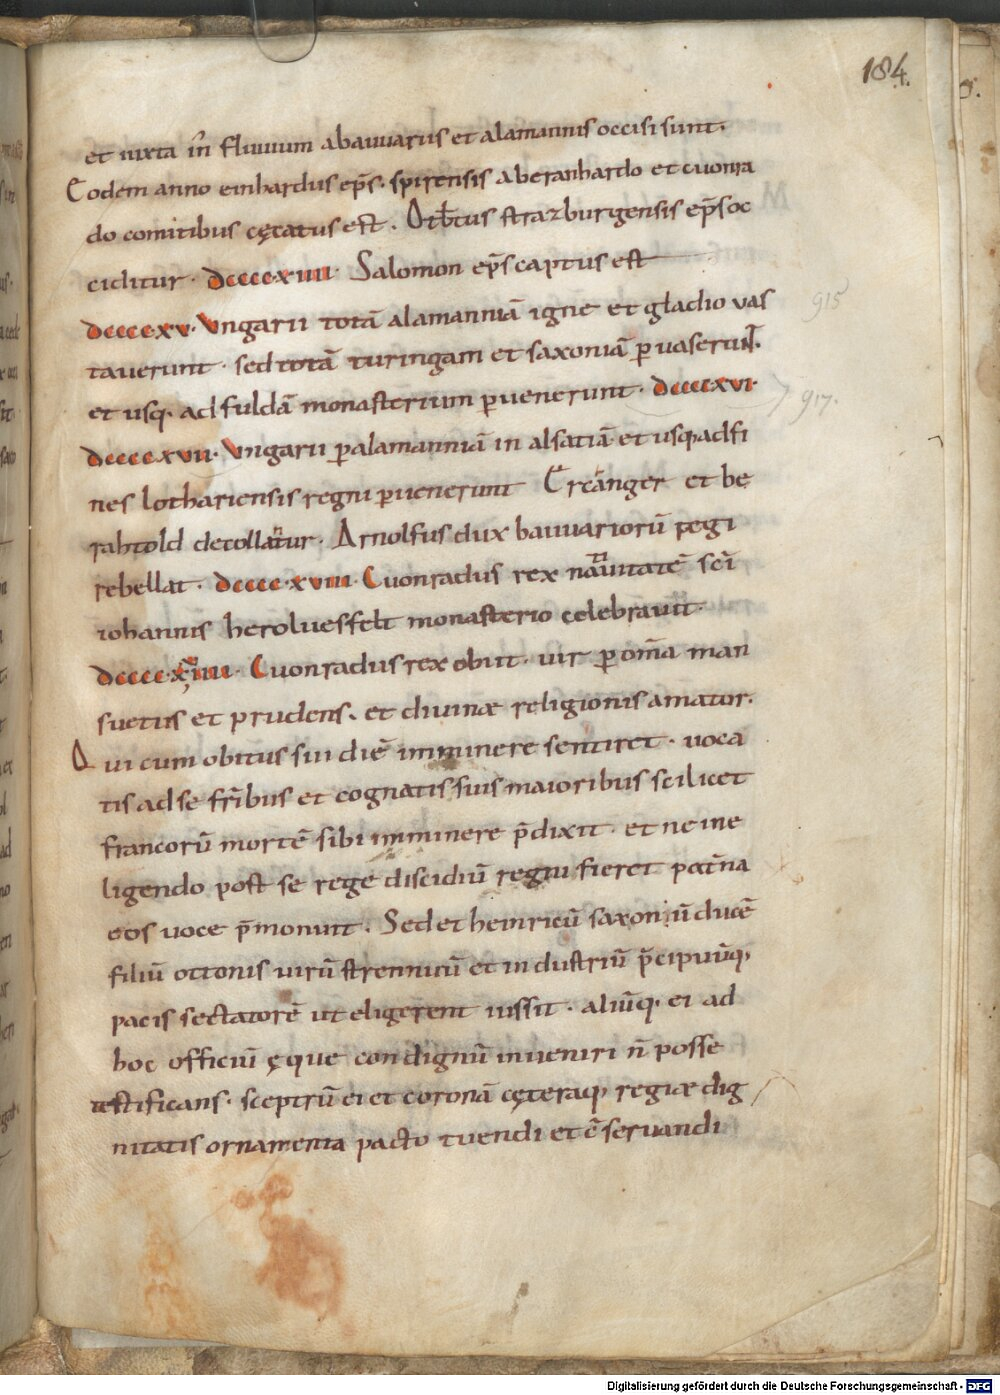 184.
et iuxta in̄ fluuium abauuarus et alamannis occisi sunt.
Eodem anno einhardus ep̄s. spirensis aberanhardo et cuonra
do comitibus cęcatus est. Otb̄tus strazburgensis ep̄s oc
ciditur. dccccxiiii. Salomon ep̄s captus est
dccccxv. Vngarii totā alamanniā igne et gladio vas
915
tauerunt. sed totā turingam et saxoniā ꝑuaserunt.
et usq; ad fuldā monasterium ꝑuenerunt. dccccxvi.
917.
dccccxvii. Vngarii ꝑalamanniā in alsatiā et usq; ad fi
nes lothariensis regni ꝑuenerunt Ercanger et be
rahtold decollantur. Arnolfus dux bauuariorū regi
rebellat. dcccc.xviii. Cuonradus rex natiuitatē sc̄i
iohannis heroluesfelt monasterio celebrauit.
dcccc.xviiii. Cuonradus rex obiit. uir ꝑ om̄a man
suetus et prudens. et diuinæ religionis amator.
Qui cum obitus sui diē imminere sentiret. uoca
tis ad se fr̄ibus et cognatis suis maioribus scilicet
francorū mortē sibi imminere p̄dixit. et ne in e
ligendo post se rege discidiū regni fieret pat̄na
eos uoce p̄monuit. Sed et heinricū saxonū ducē
filiū ottonis uirū strennuū et industriū p̄cipuūq;
pacis sectatorē ut eligerent iussit. aliūq; ei ad
hoc officiū ęque condignū inueniri n̄ posse
testificans. sceptrū ei et coronā cęteraq; regiæ dig
nitatis ornamenta pacto tuendi et c̄seruandi
Digitalisierung gefördert durch die Deutsche Forschungsgemeinschaft - DFG